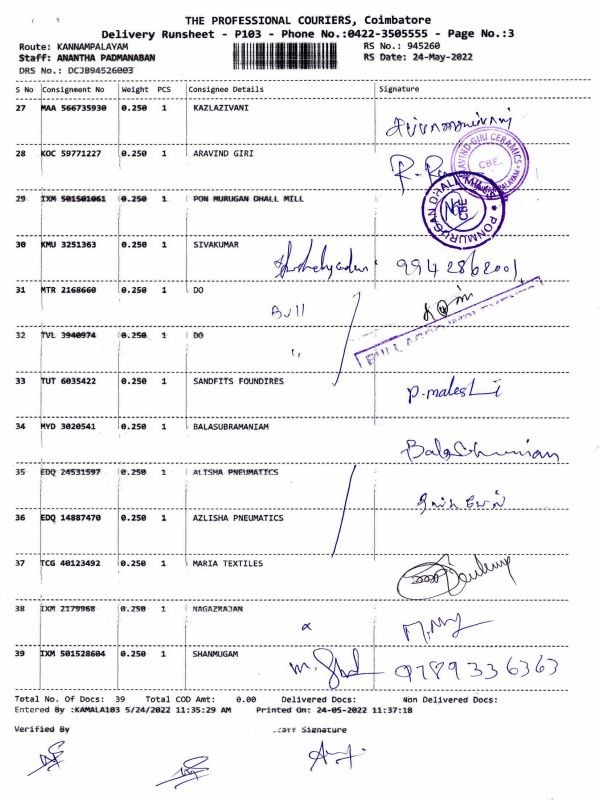 THE PROFESSIONAL COURIERS, Coimbatore
Delivery Runsheet - P103 - Phone No.:0422-3505555 - Page No.:3
Route: KANNAMPALAYAM RS No.: 945260
Staff: ANANTHA PADMANABAN RS Date: 24-May-2022
DRS No.: DCJB94526003
S No Consignment No Weight PCS Consignee Details Signature
27 MAA 566735930 0.250 1 KAZLAZIVANI
28 KOC 59771227 0.250 1 ARAVIND GIRI
29 IXM 501501061 0.250 1 PON MURUGAN DHALL MILL
30 KMU 3251363 0.250 1 SIVAKUMAR
9942862001
31 MTR 2168660 0.250 1 DO
Bull
32 TVL 3940974 0.250 1 DO
33 TUT 6035422 0.250 1 SANDFITS FOUNDIRES
34 MYD 3020541 0.250 1 BALASUBRAMANIAM
35 EDQ 24531597 0.250 1 ALISHA PNEUMATICS
36 EDQ 14887470 0.250 1 AZLISHA PNEUMATICS
37 TCG 40123492 0.250 1 MARIA TEXTILES
38 IXM 2179968 0.250 1 NAGAZRAJAN
39 IXM 501528604 0.250 1 SHANMUGAM
9789336363
Total No. Of Docs: 39 Total COD Amt: 0.00 Delivered Docs: Non Delivered Docs:
Entered By :KAMALA103 5/24/2022 11:35:29 AM Printed On: 24-05-2022 11:37:18
Verified By Staff Signature